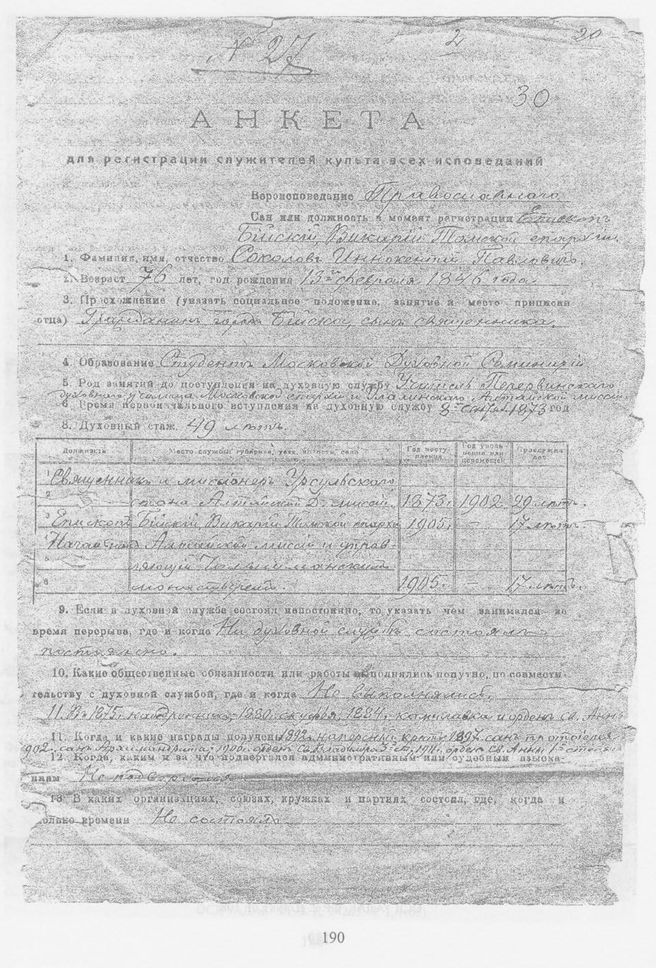 N 27
2
20
30
АНКЕТА
для регистрации служителей культа всех исповеданий
Вероисповедание Православнаго
Сан или должность в момент регистрации Епископъ
Бійскій, Викарій Томской епархіи.
1. Фамилия, имя, отчество Соколовъ Иннокентій Павловичъ
2. Возраст 76 лет, год рождения 13го февраля 1846 года.
3. Происхождение (указать социальное положение, занятие и место приписки
отца) Гражданинъ города Бійска, сынъ священника.
4. Образование Студентъ Московской Духовной Семинаріи
5. Род занятий до поступления на духовную службу Учитель Перервинскаго
духовнаго училища Московской епархіи и Алтайской миссіи
6. Время первоначального вступления на духовную службу 1873 год
8. Духовный стаж. 49 лѣтъ.
Должности
Место службы
Год посту пления
Прослужил лет
1 Священникъ и миссіонеръ Урсульскаго
2 стана Алтайской Д. миссіи 1873 г. 1902 29 лѣтъ.
3 Епископъ Бійскій, Викарій Томской епархіи 1905 г. – 17 лѣтъ
4 Начальникъ Алтайской миссіи и управ-
5 ляющій Чолышманскимъ
6 монастыремъ. 1905 г. – 17 лѣтъ.
9. Если в духовной службе состоял непостоянно, то указать чем занимался во
время перерыва, где и когда На духовной службѣ состоялъ
постоянно.
10. Какие общественные обязанности или работы выполнялись попутно, по совмести-
тельству с духовной службой, где и когда Не выполнялись.
1875 г. набедренникъ, 1880 скуфья, 1884 г. камилавка и орденъ Св. Анны
11. Когда и какие награды получены 1892 наперсный крестъ 1897 санъ протоіерея
902 г. санъ Архимандрита, орденъ Св. Владиміра 3 ст., орденъ Св. Анны 1 степени
12. Когда, каким и за что подвергался административным или судебным взыска-
ниям Не подвергался
13. В каких организациях, союзах, кружках и партиях состоял, где, когда и
сколько времени Не состоялъ
190